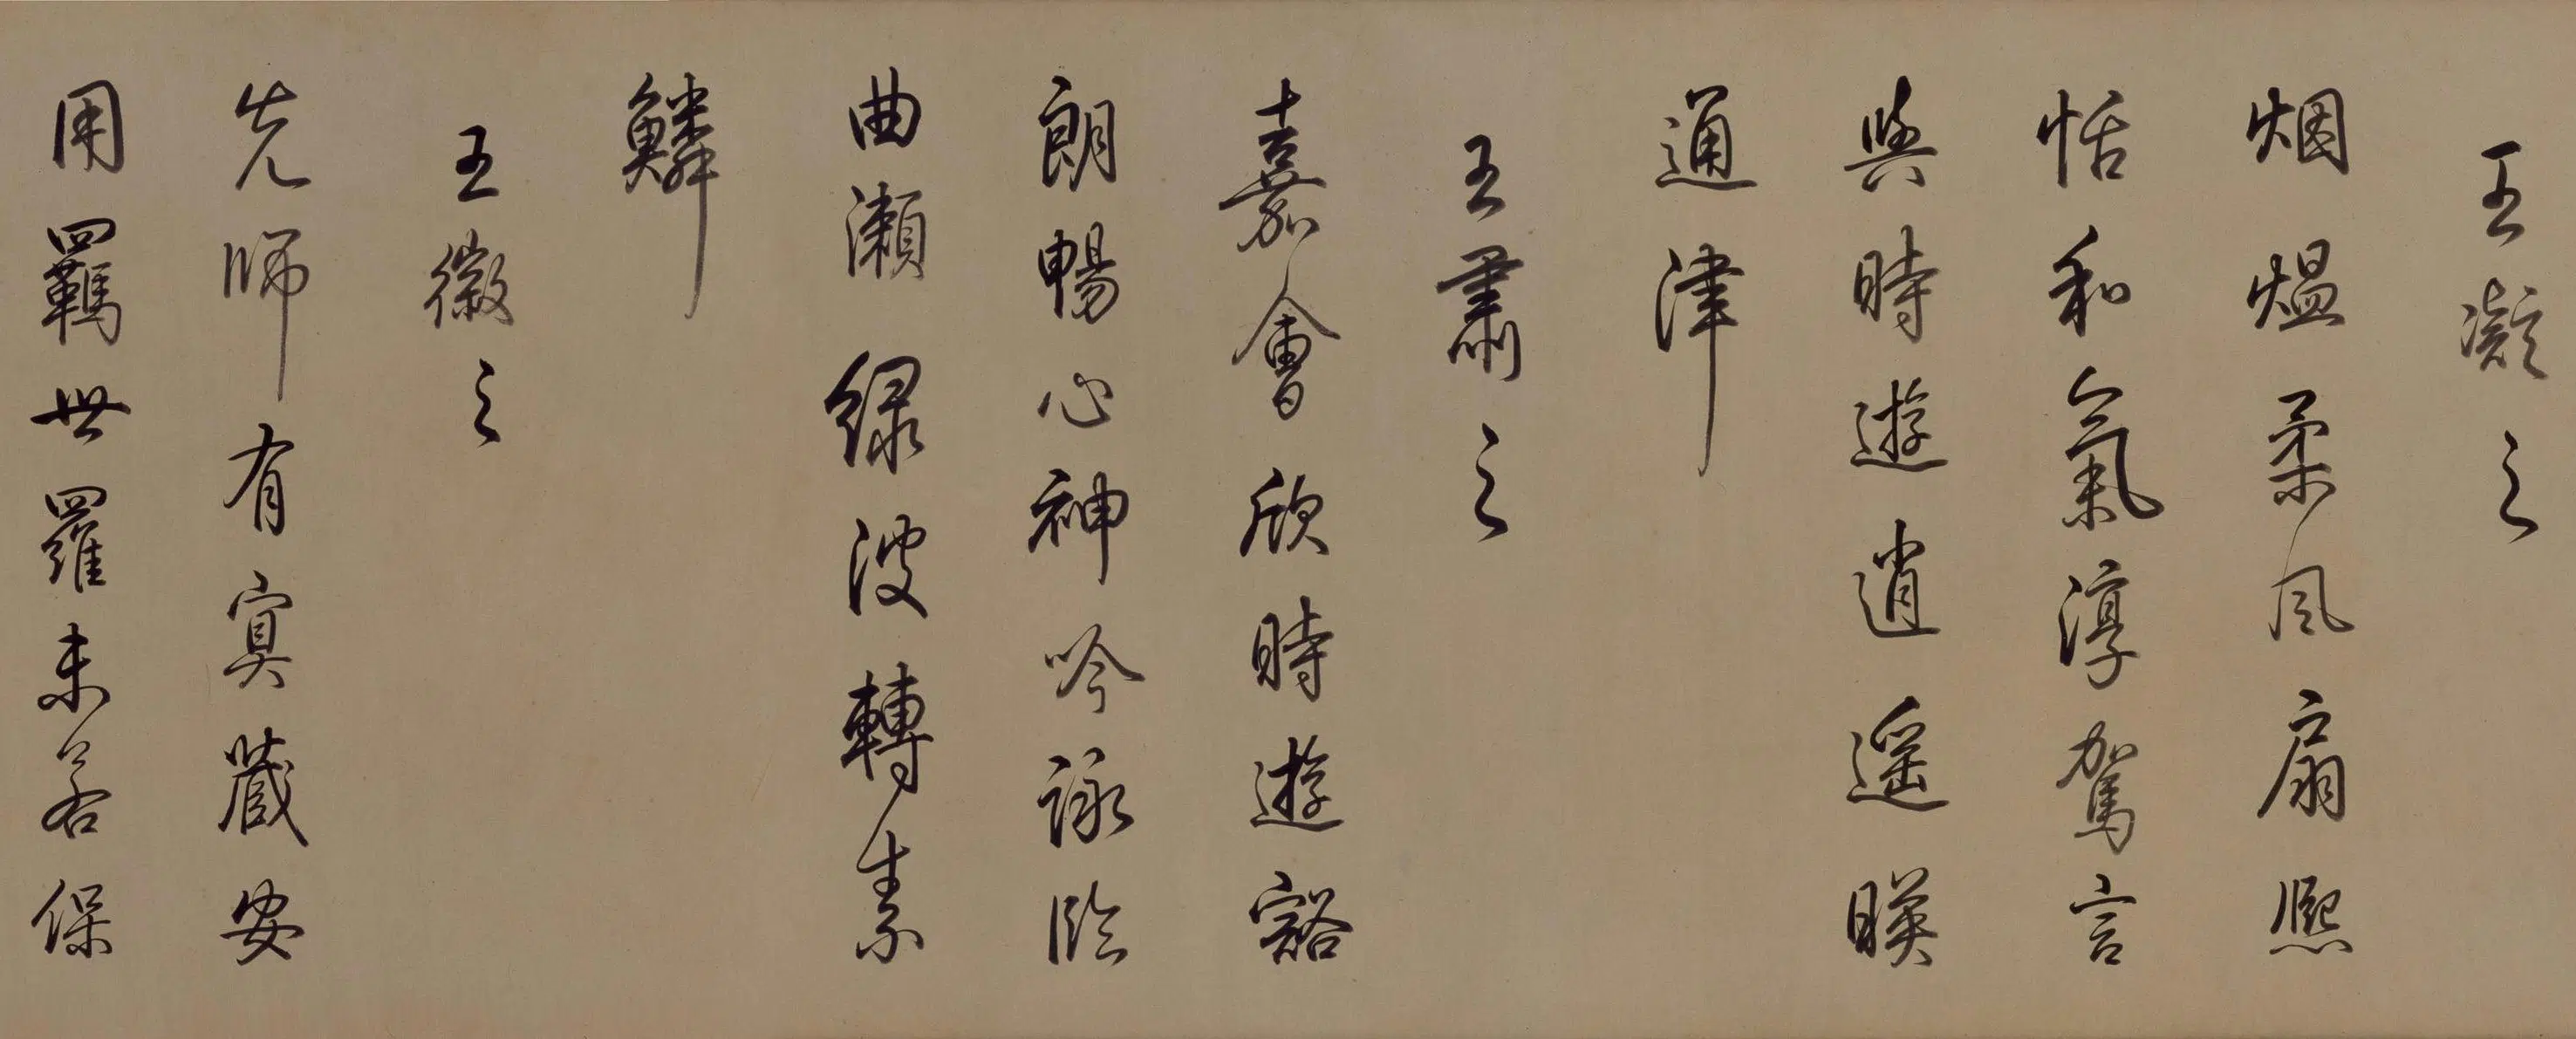 王凝之
烟熅柔風扇熙
怡和氣淳駕言
與時遊逍遥暎
通津
王肅之
嘉會欣時遊豁
朗暢心神吟詠臨
曲瀨緑波轉素
鱗
王徽之
先師有冥藏安
用羈世羅未若保